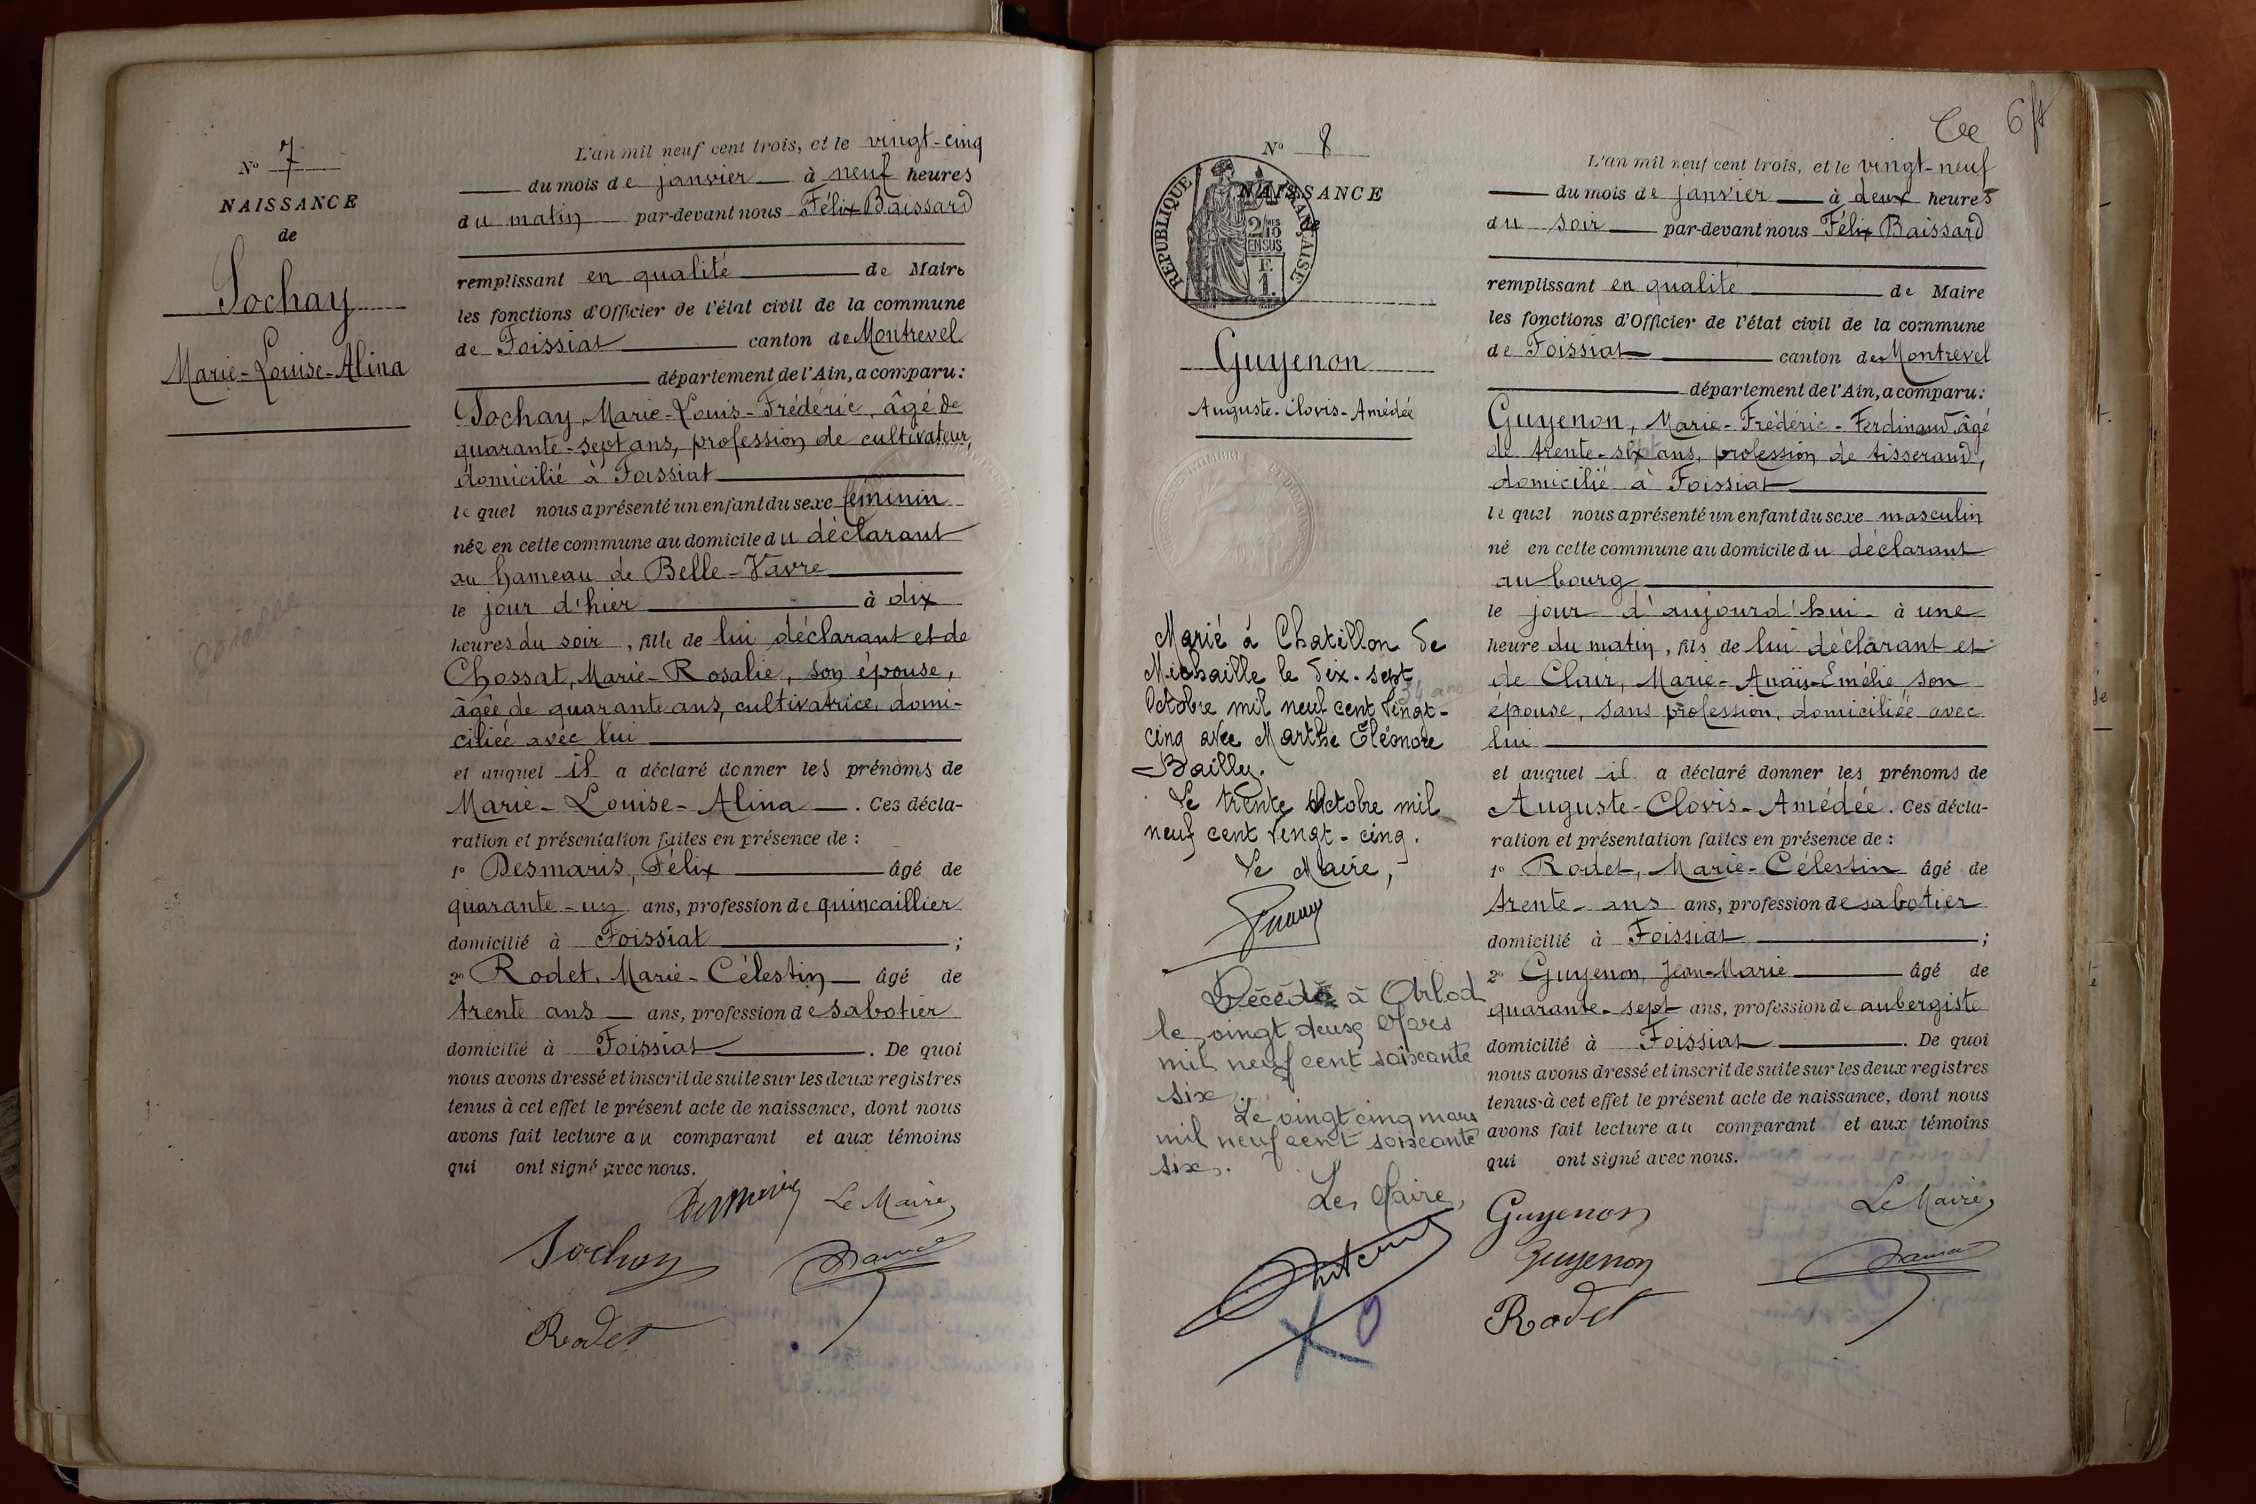 N° 7
NAISSANCE
de
Jochay
Marie-Louise-Alina
L'an mil neuf cent trois, et le vingt-cinq
du mois de janvier à neuf heures
du matin par-devant nous Félix Baissard
remplissant en qualité de Maire
les fonctions d'Officier de l'état civil de la commune
de Foissiat canton de Montrevel
département de l'Ain, a comparu :
Jochay, Marie-Louis-Frédéric, âgé de
quarante-sept ans, profession de cultivateur,
domicilié à Foissiat
le quel nous a présenté un enfant du sexe féminin
née en cette commune au domicile du déclarant
au hameau de Belle-Vavre
le jour d'hier à dix
heures du soir, fille de lui déclarant et de
Chossat, Marie-Rosalie, son épouse,
âgée de quarante ans, cultivatrice, domi-
ciliée avec lui
et auquel il a déclaré donner les prénoms de
Marie-Louise-Alina. Ces décla-
ration et présentation faites en présence de :
1° Desmaris, Félix âgé de
quarante-un ans, profession de quincaillier
domicilié à Foissiat ;
2° Rodet, Marie-Célestin âgé de
trente ans ans, profession de sabotier
domicilié à Foissiat. De quoi
nous avons dressé et inscrit de suite sur les deux registres
tenus à cet effet le présent acte de naissance, dont nous
avons fait lecture au comparant et aux témoins
qui ont signé avec nous.
Desmaris Le Maire,
Jochay
Rodet
6
N° 8
NAISSANCE
de
RÉPUBLIQUE FRANÇAISE
2/10 EN SUS
F. 1.
Guyenon
Auguste-Clovis-Amédée
Marié à Chatillon de
Michaille le dix-sept
Octobre mil neuf cent vingt-
cinq avec Marthe Eléonore
Bailly.
Le trente Octobre mil
neuf cent vingt-cinq.
Le Maire,
Décédé à Arlod
le vingt deux Mars
mil neuf cent soixante
six.
Le vingt cinq mars
mil neuf cent soixante
six.
Le Maire,
L'an mil neuf cent trois, et le vingt-neuf
du mois de janvier à deux heures
du soir par-devant nous Félix Baissard
remplissant en qualité de Maire
les fonctions d'Officier de l'état civil de la commune
de Foissiat canton de Montrevel
département de l'Ain, a comparu :
Guyenon, Marie-Frédéric-Ferdinand, âgé
de trente-six ans, profession de tisserand,
domicilié à Foissiat
le quel nous a présenté un enfant du sexe masculin
né en cette commune au domicile du déclarant
au bourg
le jour d'aujourd'hui à une
heure du matin, fils de lui déclarant et
de Clair, Marie-Anaïs-Emélie son
épouse, sans profession, domiciliée avec
lui
et auquel il a déclaré donner les prénoms de
Auguste-Clovis-Amédée. Ces décla-
ration et présentation faites en présence de :
1° Rodet, Marie-Célestin âgé de
trente ans ans, profession de sabotier
domicilié à Foissiat ;
2° Guyenon, Jean-Marie âgé de
quarante-sept ans, profession de aubergiste
domicilié à Foissiat. De quoi
nous avons dressé et inscrit de suite sur les deux registres
tenus à cet effet le présent acte de naissance, dont nous
avons fait lecture au comparant et aux témoins
qui ont signé avec nous.
Guyenon Le Maire,
Guyenon
Rodet